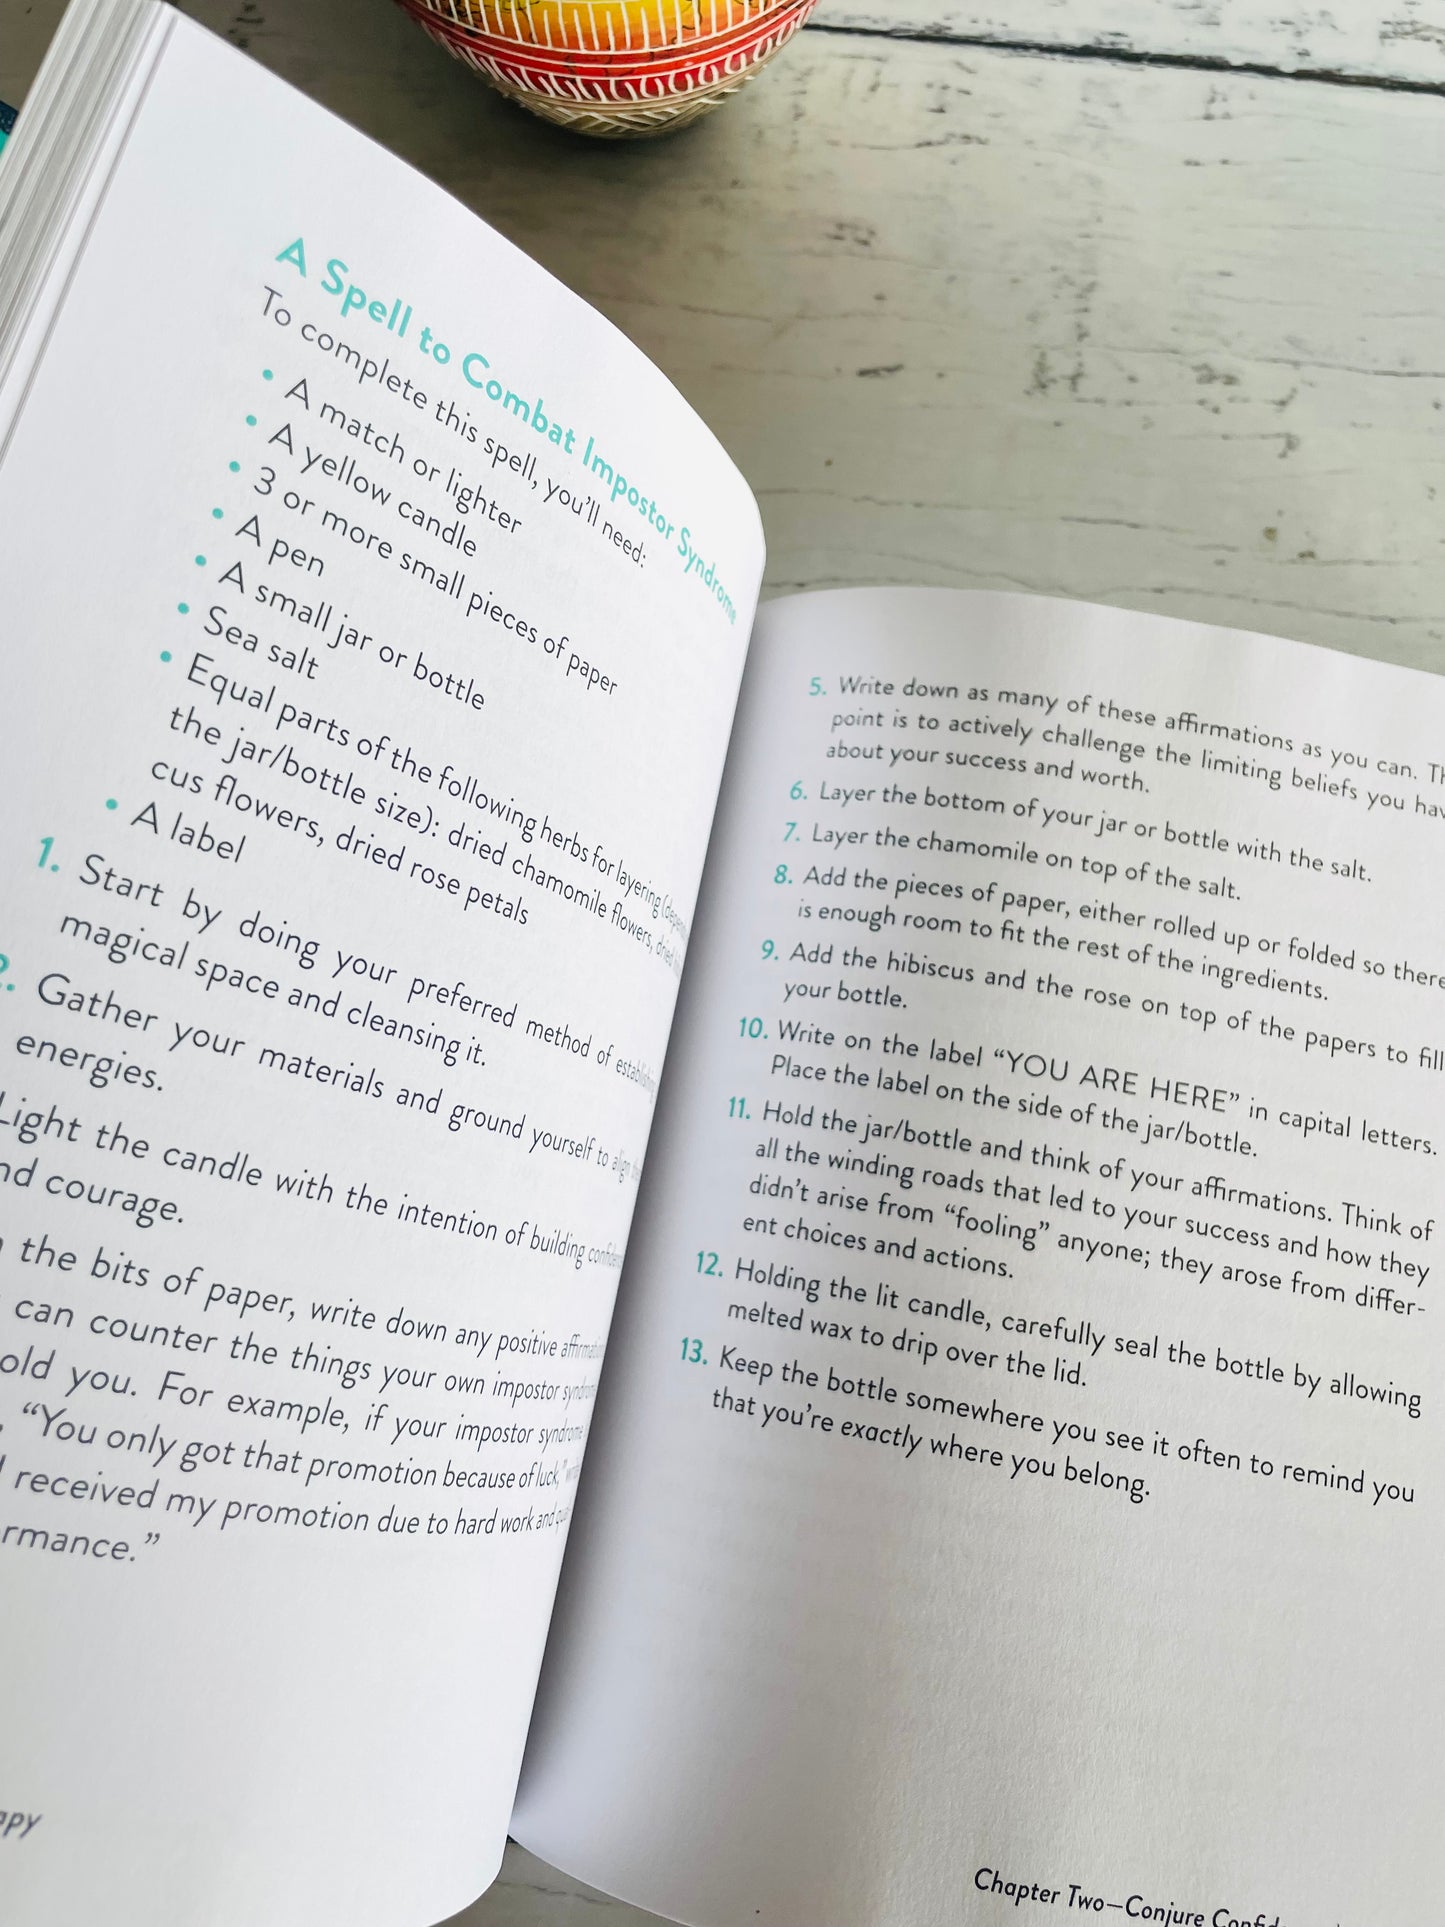 A Spell to Combat Impostor Syndrome
To complete this spell, you'll need:
• A match or lighter
• A yellow candle
• 3 or more small pieces of paper
• A pen
• A small jar or bottle
• Sea salt
• Equal parts of the following herbs for layering
the jar/bottle size): dried chamomile flowers, dried
cus flowers, dried rose petals
• A label
1. Start by doing your preferred method of establishing
magical space and cleansing it.
2. Gather your materials and ground yourself to align
energies.
Light the candle with the intention of building
nd courage.
the bits of paper, write down any positive
can counter the things your own impostor
old you. For example, if your impostor syndrome
"You only got that promotion because of luck,"
received my promotion due to hard work and
rmance."
apy
5. Write down as many of these affirmations as you can.
point is to actively challenge the limiting beliefs you
about your success and worth.
6. Layer the bottom of your jar or bottle with the salt.
7. Layer the chamomile on top of the salt.
8. Add the pieces of paper, either rolled up or folded so there
is enough room to fit the rest of the ingredients.
9. Add the hibiscus and the rose on top of the papers to fill
your bottle.
10. Write on the label "YOU ARE HERE" in capital letters.
Place the label on the side of the jar/bottle.
11. Hold the jar/bottle and think of your affirmations. Think of
all the winding roads that led to your success and how they
didn't arise from "fooling" anyone; they arose from differ-
ent choices and actions.
12. Holding the lit candle, carefully seal the bottle by allowing
melted wax to drip over the lid.
13. Keep the bottle somewhere you see it often to remind you
that you're exactly where you belong.
Chapter Two—Conjure